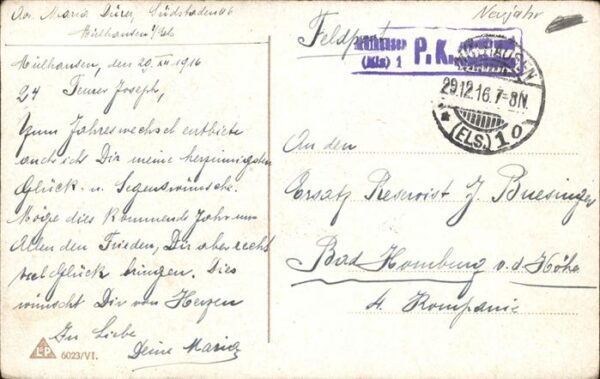 Abs. Maria Dürr, Südstaden 26
Mülhausen/Els.
Mülhausen, den 29.XII.1916
24 Teurer Joseph,
Zum Jahreswechsel entbiete
auch ich Dir meine herzinnigsten
Glück- u. Segenswünsche.
Möge dies kommende Jahr uns
Allen den Frieden, Dir aber recht
viel Glück bringen. Dies
wünscht Dir von Herzen
In Liebe
Deine Maria
LP
6023/VI.
Neujahr
Feldpost
Mülhausen
(Els) 1 P.K.
MÜLHAUSEN
29.12.16.7-8N.
* (ELS.) 1 o
An den
Ersatz Reservist J. Buesinger
Bad Homburg v. d. Höhe
4. Kompanie